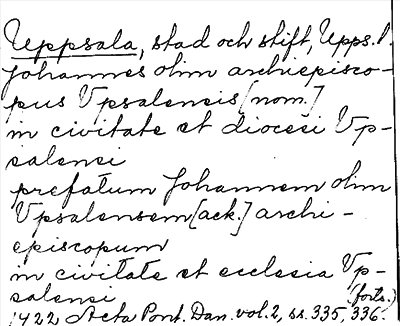 Uppsala, stad och stift, Upps.l.
Johannes olim archiepisco-
pus Vpsalensis [nom.]
in civitate et diocesi Vp-
salensi
prefatum Johannem olim
Vpsalensem [ack.] archi-
episcopum
in civitate et ecclesia Vp-
salensi (forts.)
1422 Acta Pont. Dan. vol. 2, ss. 335, 336.